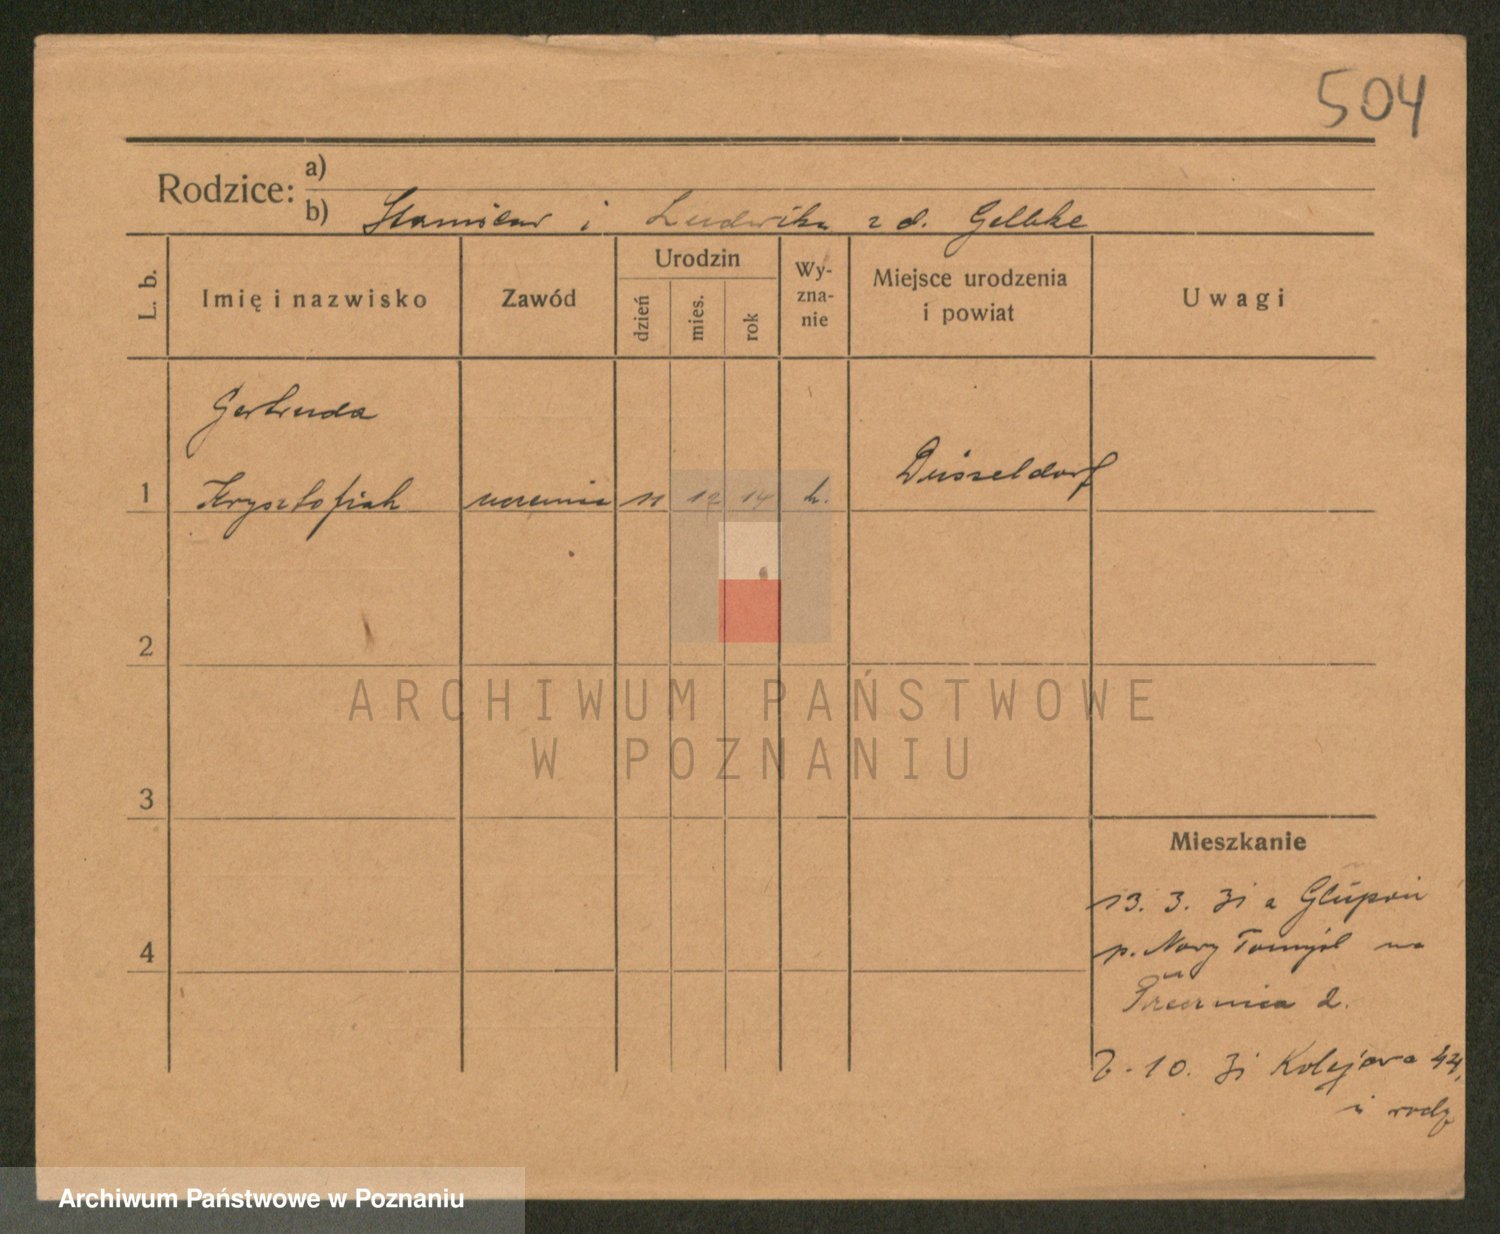 504
Rodzice: a)
b) Stanisław i Ludwika z d. Gelbke
L. b.
Imię i nazwisko
Zawód
Urodzin
dzień
mies.
rok
Wy-
zna-
nie
Miejsce urodzenia
i powiat
Uwagi
Gertruda
1 Krysztofiak uczennica 11 12 14 k. Düsseldorf
2
3
4
ARCHIWUM PAŃSTWOWE
W POZNANIU
Mieszkanie
13. 3. 31 z Głuponi
p. Nowy Tomyśl na
2.
10. 31 Kolejowa 44,
u rodz
Archiwum Państwowe w Poznaniu